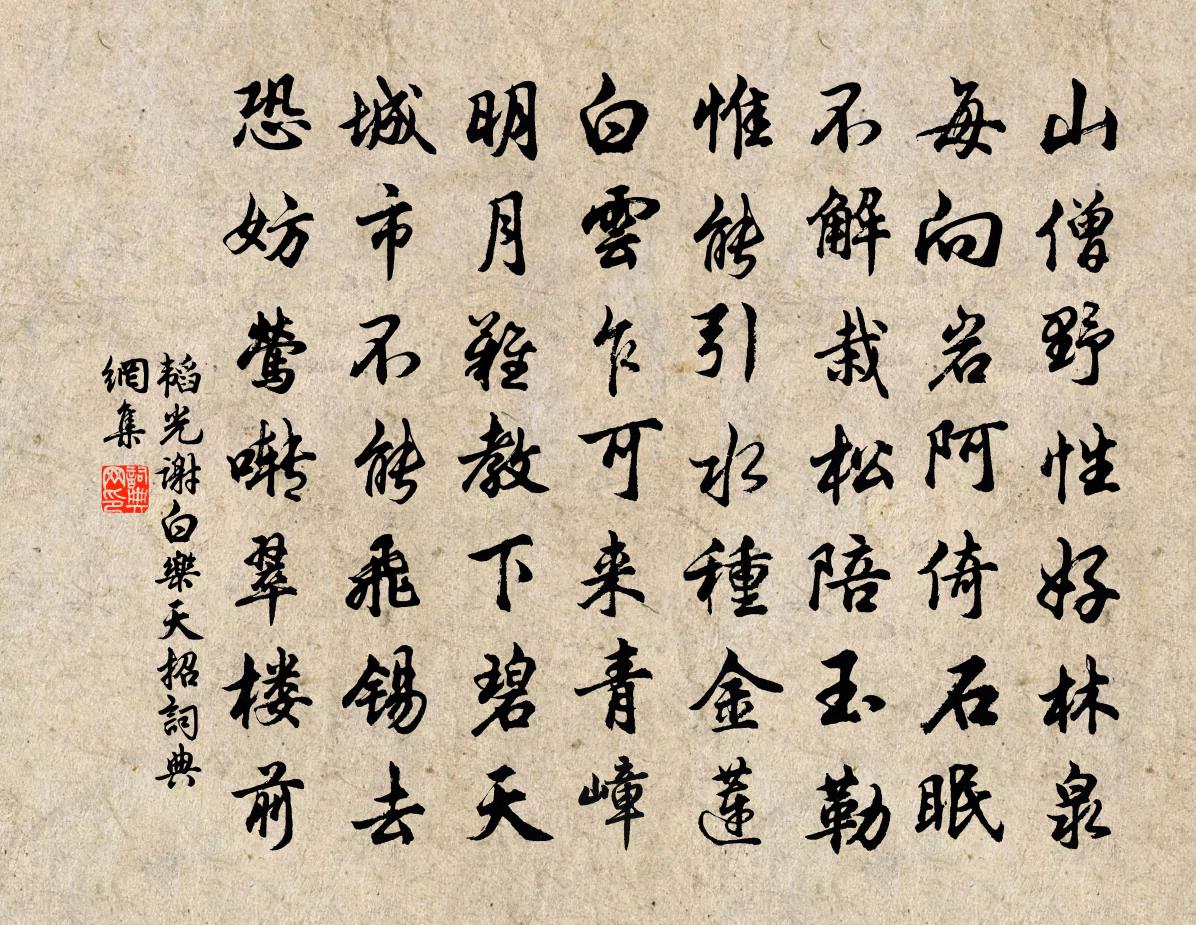 山僧野性好林泉
每向岩阿倚石眠
不解栽松陪玉勒
惟能引水種金蓮
白雲乍可来青嶂
明月難教下碧天
城市不能飛錫去
恐妨鶯囀翠楼前
韜光謝白樂天招詞典
網集
詞典
网印